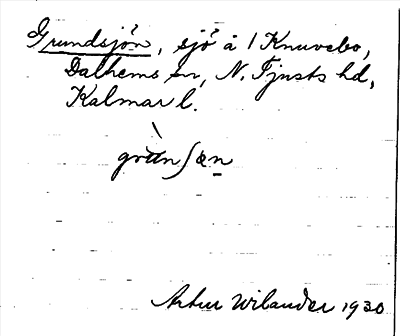 Grundsjön, sjö å 1 Knuvebo,
Dalhems sn, N. Tjusts hd,
Kalmar l.
Artur Wilander 1930